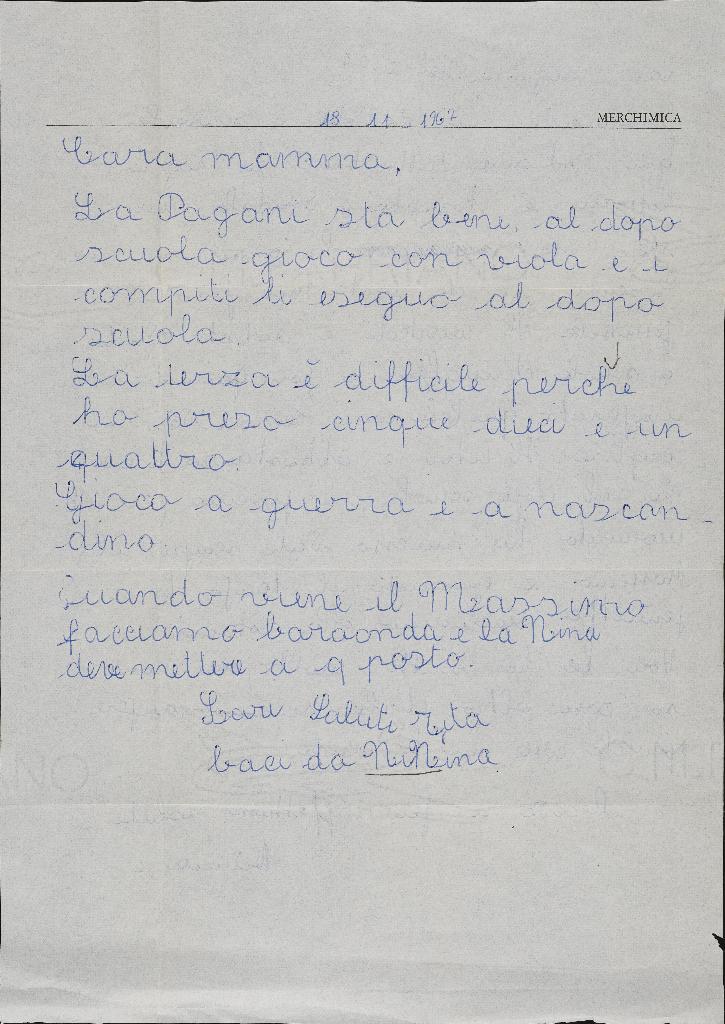 18 11 1967 MERCHIMICA
Cara mamma,
La Pagani sta bene, al dopo
scuola gioco con viola e i
compiti li eseguo al dopo
scuola.
La terza è difficile perchè
ho preso cinque dieci e un
quattro.
Gioco a guerra e a nascon-
dino.
Quando viene il Massimo
facciamo baraonda e la Nina
deve mettere a q posto.
Cari Saluti Rita
baci da NiNina